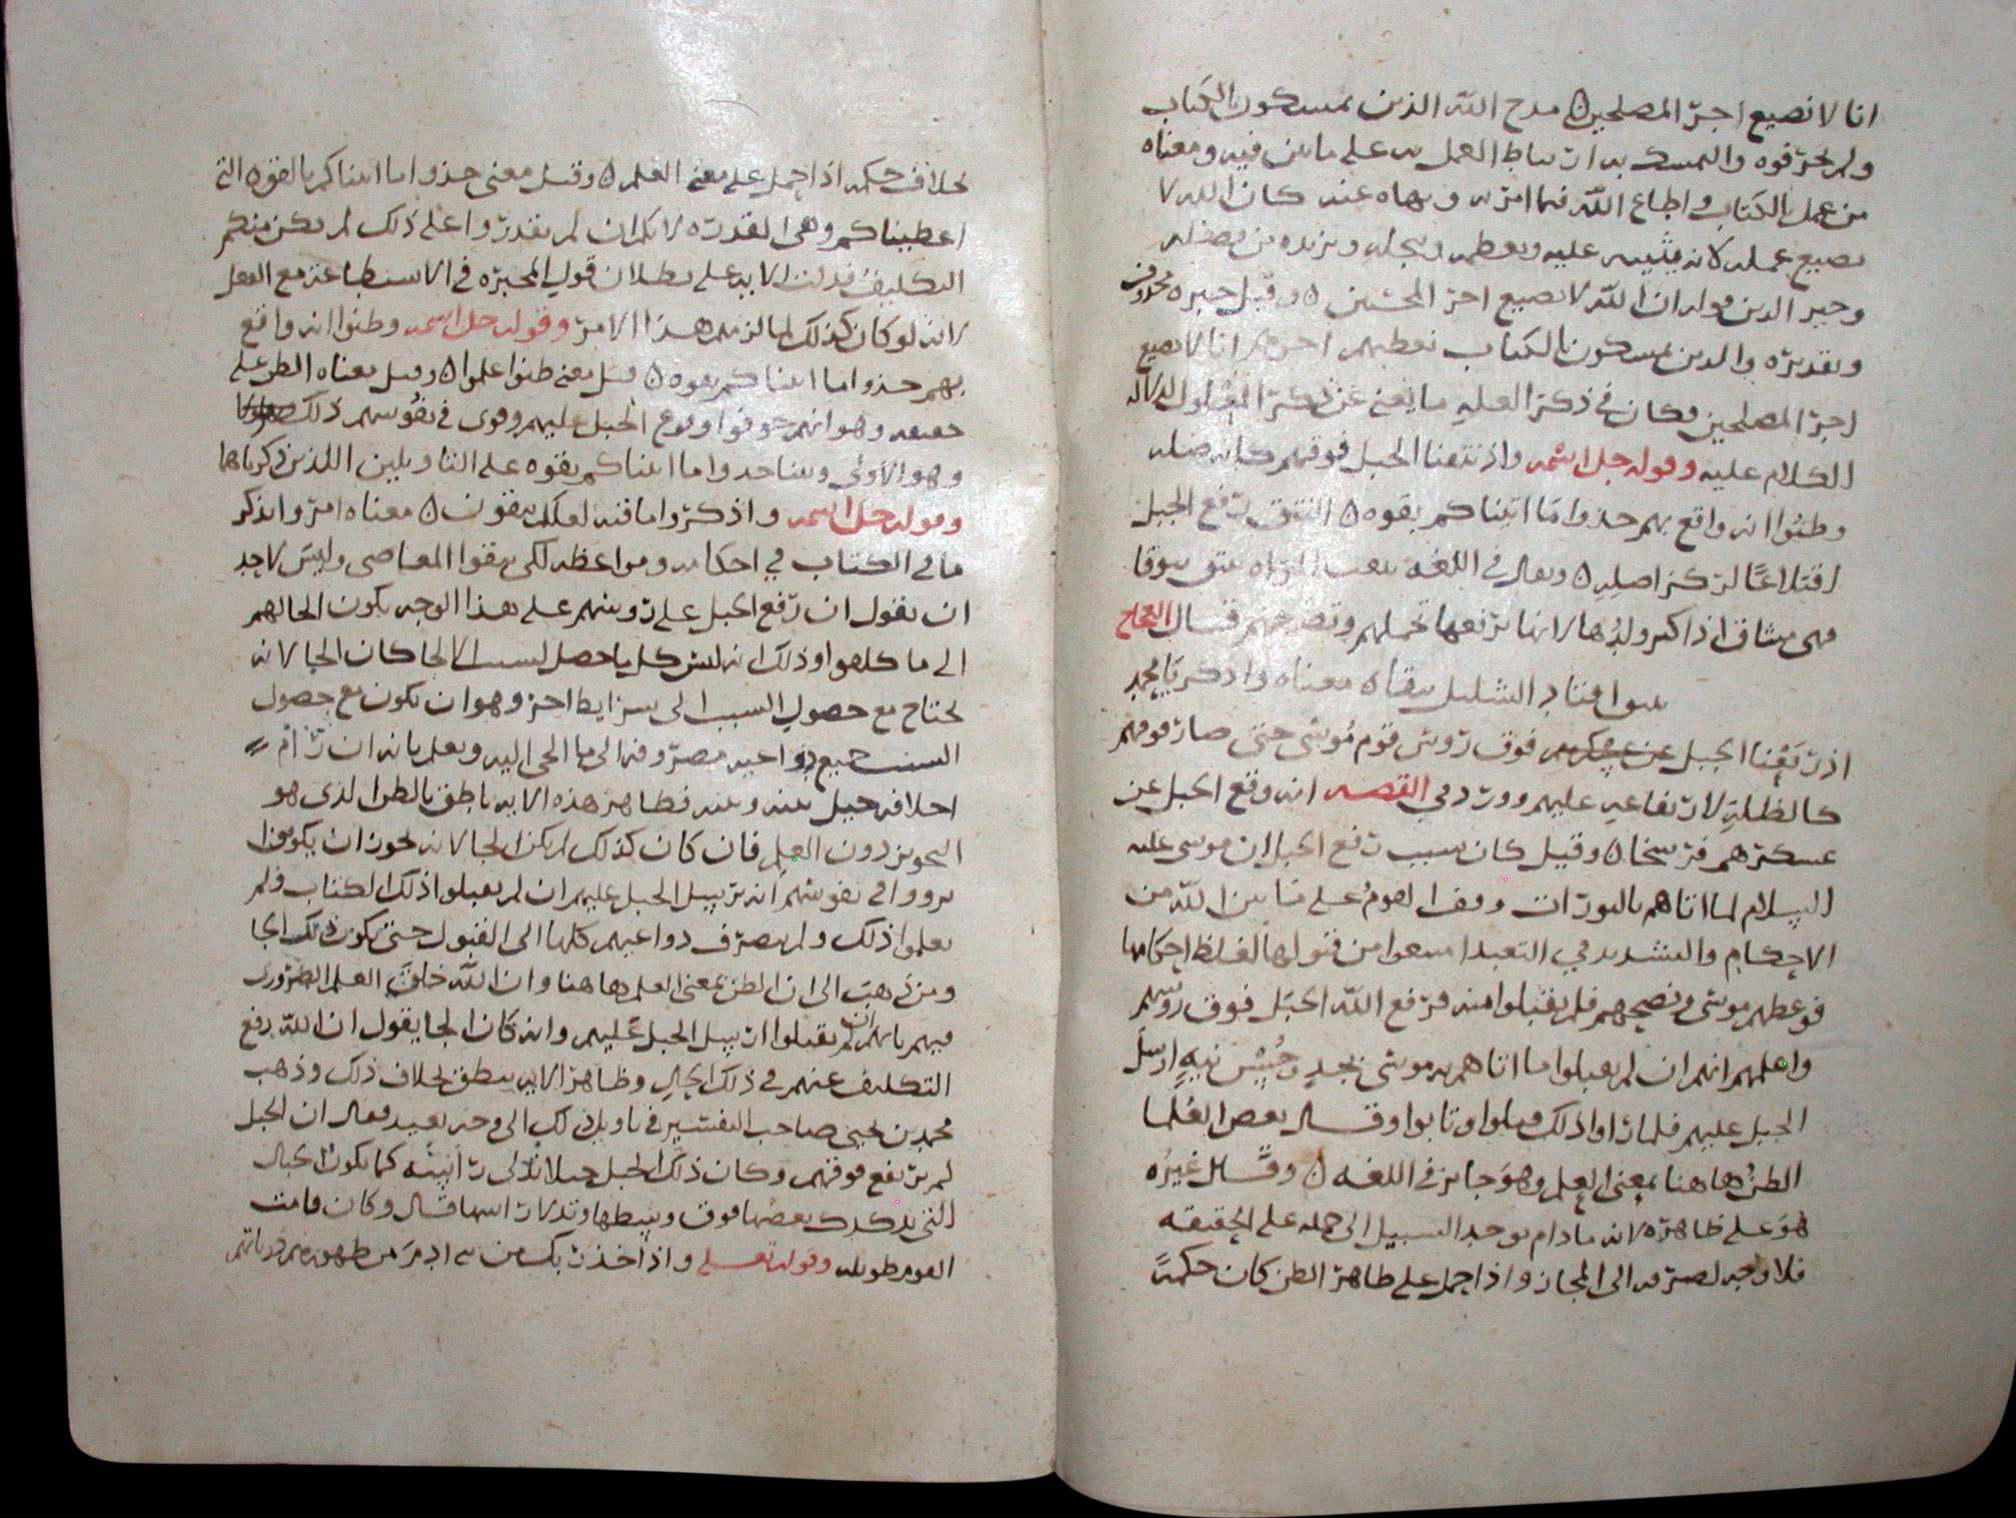 انا لا نضيع اجر المصلحين ٥ مدح الله الذين يمسكون بالكتاب
ولم يحرفوه والتمسك به ارتباط العمل به على ما بين فيه ومعناه
من عمل بالكتاب واطاع الله فيما امر به ونهاه عنه كان الله لا
يضيع عمله لانه يثيبه عليه ويعظمه ويجله ويزيده من فضله
وخبر الذين قوله ان الله لا يضيع اجر المحسنين ٥ وقيل خبره محذوف
وتقديره والذين يمسكون بالكتاب نعطيهم اجرهم انا لا نضيع
اجر المصلحين وكان في ذكر العلة ما يغني عن ذكر المعلول لدلالة
الكلام عليه وقوله جل اسمه واذ نتقنا الجبل فوقهم كانه ظله
وظنوا انه واقع بهم خذوا ما اتيناكم بقوه ٥ النتق رفع الجبل
اقتلاعا له من اصله ٥ ويقال في اللغه نتقت المراه تنتق نتوقا
فهي منتاق اذا كثر ولدها لانها ترفعها بحملهم وتضرحهم قال العجاج
ينتق اقتاد الشليل نتقا ٥ معناه واذكر يا محمد
اذ رفعنا الجبل فوق رؤس قوم موسى حتى صار فوقهم
كالظلة لارتفاعه عليهم وورد في القصه انه رفع الجبل عن
عسكرهم فرسخا ٥ وقيل كان سبب رفع الجبل ان موسى عليه
السلام لما اتاهم بالتورات ووقف القوم على ما بين الله من
الاحكام والتشديد في التعبد امتنعوا من قبولها لغلظ احكامها
فوعظهم موسى ونصحهم فلم يقبلوا منه فرفع الله الجبل فوق رؤسهم
واعلمهم انهم ان لم يقبلوا ما اتاهم به موسى بجد وحسن نيه ارسل
الجبل عليهم فلما راوا ذلك قبلوا وتابوا وقال بعض العلما
الظن هاهنا بمعنى العلم وهو جايز في اللغه ٥ وقال غيره
هو على ظاهره لانه ما دام يوجد السبيل الى حمله على الحقيقه
فلا وجه لصرفه الى المجاز واذا حمل على ظاهر الظن كان حكمه
بخلاف حكمه اذا حمل على معنى العلم ٥ وقيل معنى خذوا ما اتيناكم بالقوه التي
اعطيناكم وهي القدره لانكم ان لم تقدروا على ذلك لم يكن منكم
التكليف فدلت الايه على بطلان قول المجبره في الاستطاعة مع الفعل
لانه لو كان كذلك لما لزمهم هذا الامر وقوله جل اسمه وظنوا انه واقع
بهم خذوا ما اتيناكم بقوه ٥ قيل يعني ظنوا علموا ٥ وقيل معناه الظن على
حقيقته وهو انهم خوفوا وقوع الجبل عليهم وقوى في نفوسهم ذلك
وهو الاولى وبينا خذوا ما اتيناكم بقوه على التاويلين اللذين ذكرناهما
وقوله جل اسمه واذكروا ما فيه لعلكم تتقون ٥ معناه امروا بذكر
ما في الكتاب في احكامه ومواعظه لكي يتقوا المعاصي وليس لاحد
ان يقول ان رفع الجبل على رؤسهم على هذا الوجه يكون الجا لهم
الى ما كلفوا وذلك انه ليس كل ما حصل لسبب الالجا كان الجا لانه
يحتاج مع حصول السبب الى شرايط اخر وهو ان يكون مع حصول
السبب جميع دواعيه مصروفه الى ما الجي اليه ويعلم بانه ان رام
خلافه حيل بينه وبينه فظاهر هذه الايه ناطق بالظن الذي هو
التجويز دون العلم فان كان كذلك لم يكن الجا لانه يجوز ان يكونوا
في نفوسهم انه يرسل الجبل عليهم ان لم يقبلوا ذلك الكتاب ولم
يعلموا ذلك ولم يصرف دواعيهم كلها الى القبول حتى يكون ذلك الجا
ومن ذهب الى ان الظن بمعنى العلم هاهنا وان الله خلق العلم الضروري
فيهم بانهم ان لم يقبلوا ارسل الجبل عليهم وانه كان الجا يقول ان الله رفع
التكليف عنهم في ذلك الحال وظاهر الايه ينطق بخلاف ذلك وذهب
محمد بن يحيى صاحب التفسير في تاويل ذلك الى وجه بعيد فقال ان الجبل
لم يرتفع فوقهم وكان ذلك الجبل جبلا تدلى راسه كما تكون الجبال
التي بعضها فوق وقال وكان قامت
القوم طويله وقوله تعالى واذ اخذ ربك من بني ادم من ظهورهم ذرياتهم